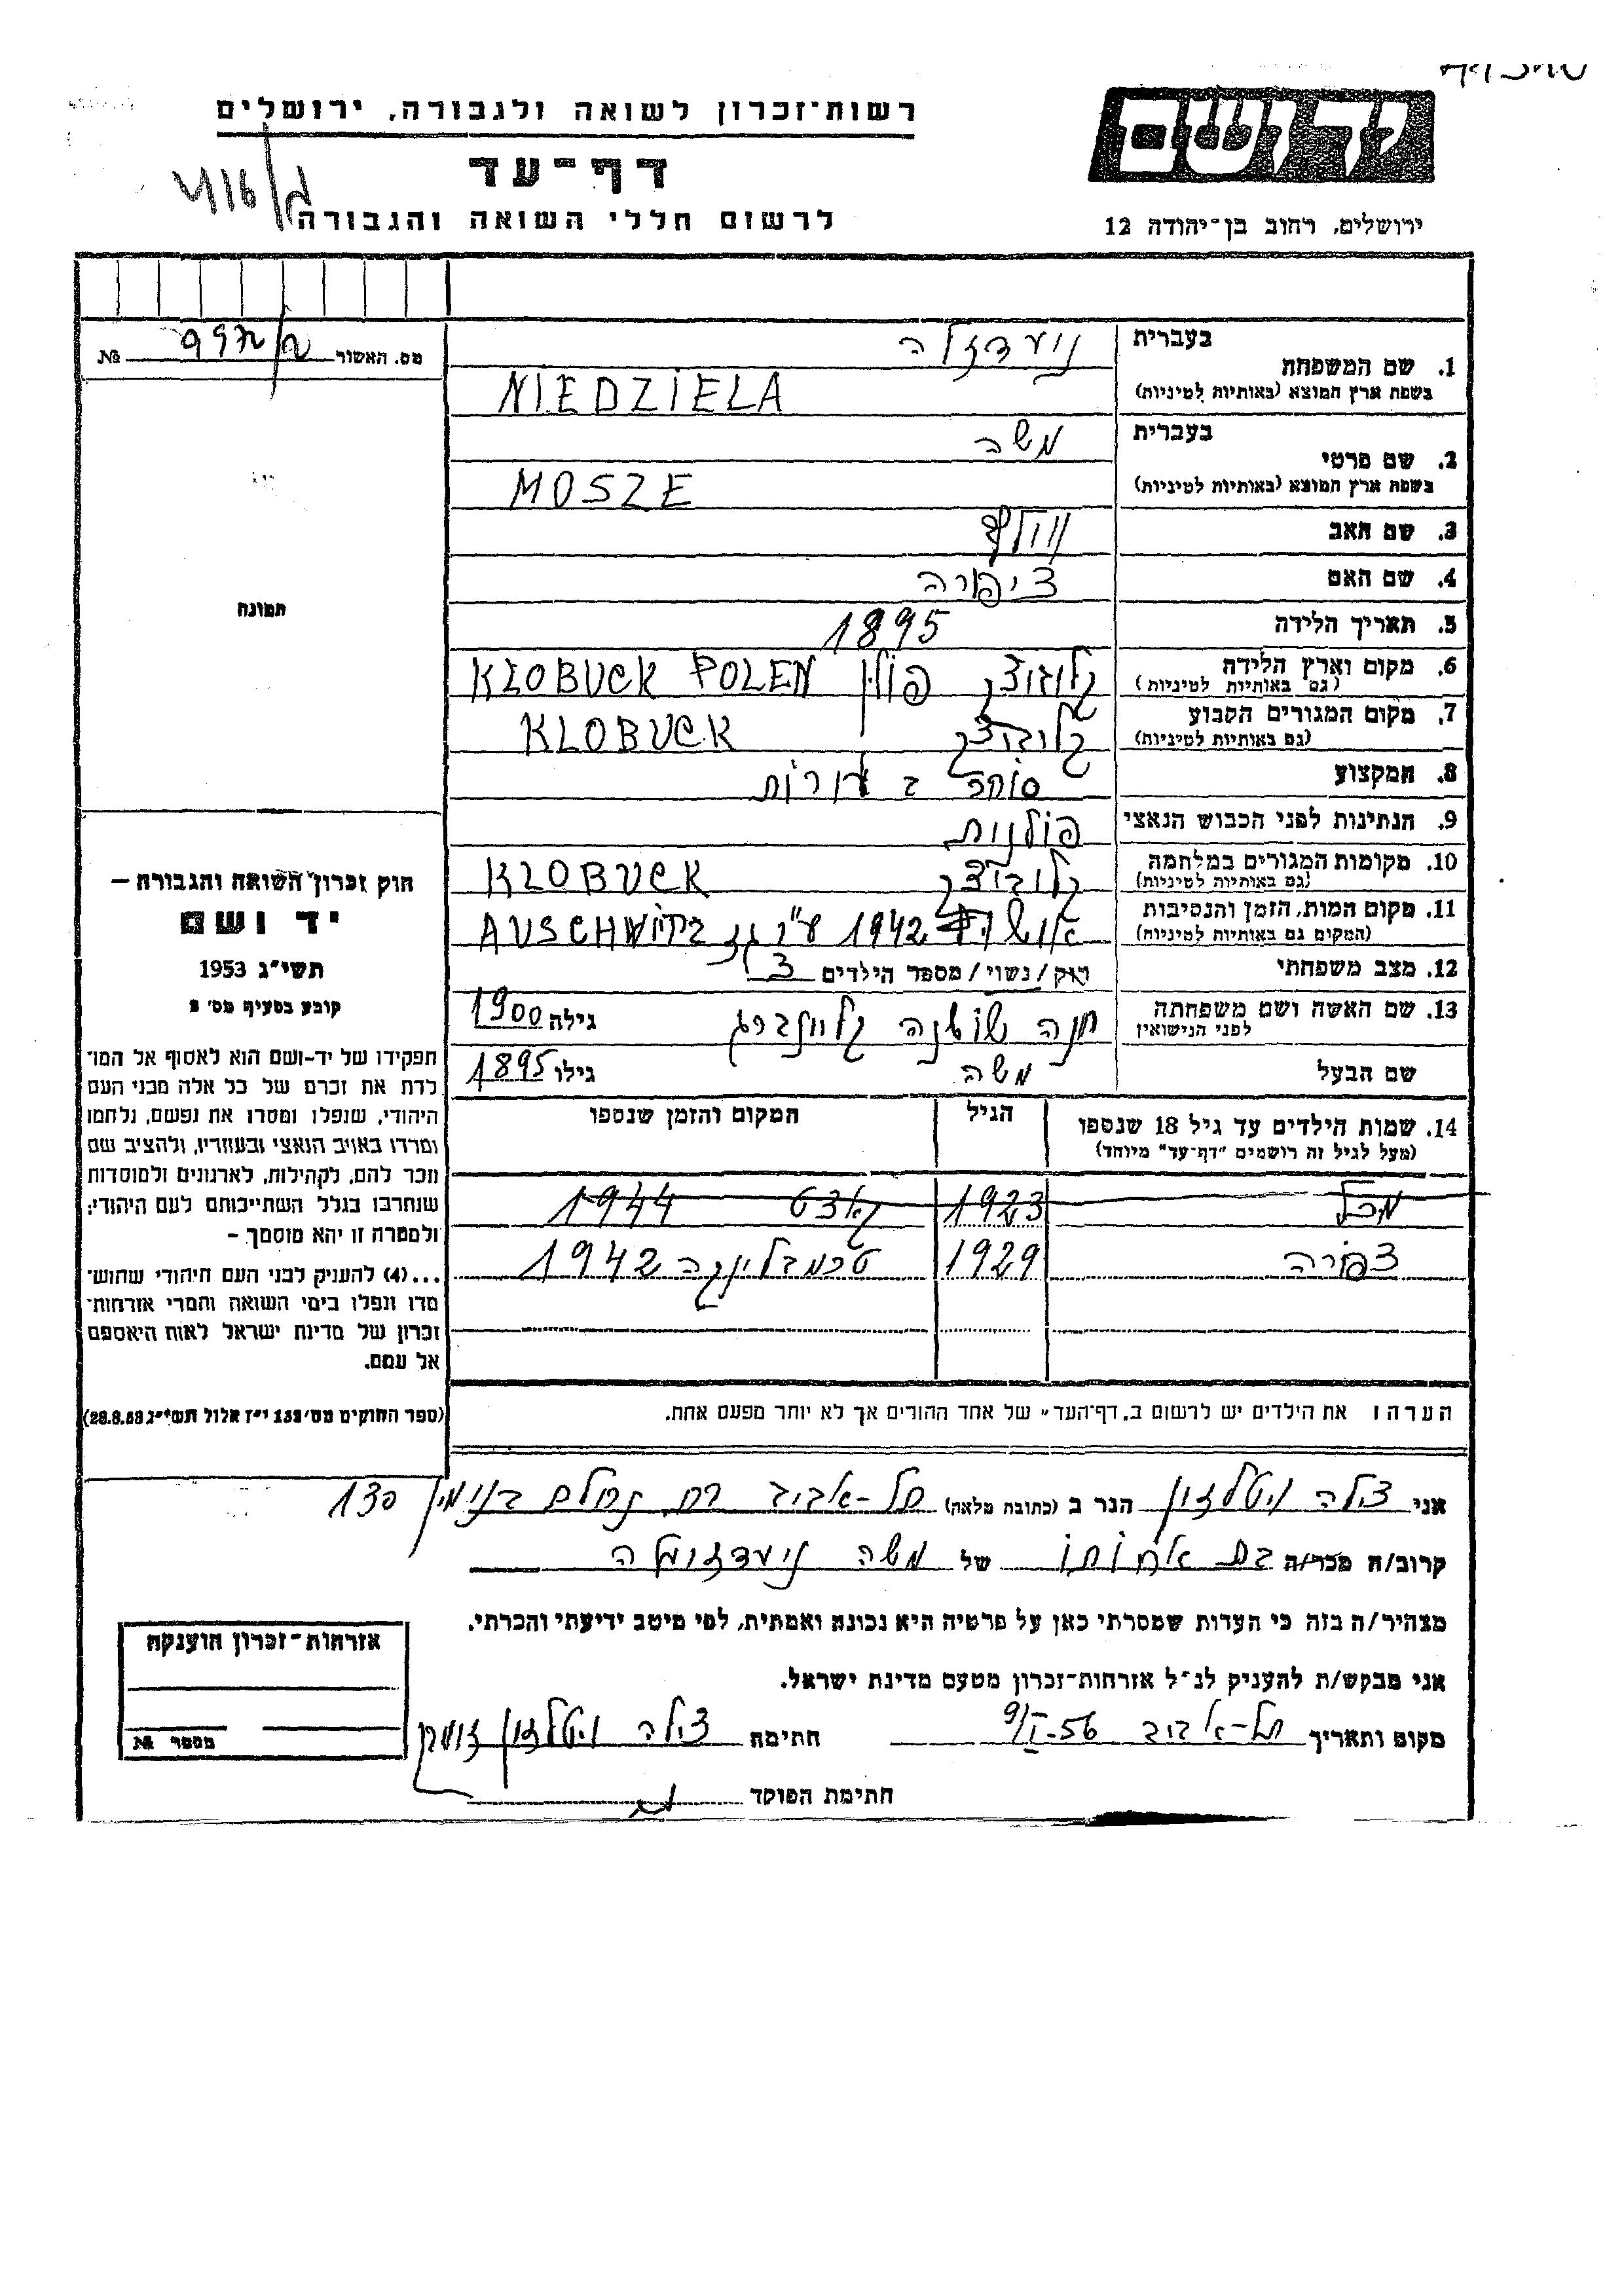 רשות־זכרון לשואה ולגבורה, ירושלים
דף־עד
לרשום חללי השואה והגבורה
ידושם
ירושלים, רחוב בן־יהודה 12
מס. האשור №
1. שם המשפחה בעברית ניעדזלה
בשפת ארץ המוצא (באותיות לטיניות) NIEDZIELA
2. שם פרטי בעברית משה
בשפת ארץ המוצא (באותיות לטיניות) MOSZE
3. שם האב וולף
4. שם האם ציפורה
5. תאריך הלידה 1895
6. מקום וארץ הלידה (גם באותיות לטיניות) קלובוצק פולין KLOBUCK POLEN
7. מקום המגורים הקבוע (גם באותיות לטיניות) קלובוצק KLOBUCK
8. המקצוע סוחר בעורות
9. הנתינות לפני הכבוש הנאצי פולנית
10. מקומות המגורים במלחמה (גם באותיות לטיניות) קלובוצק KLOBUCK
11. מקום המות, הזמן והנסיבות (המקום גם באותיות לטיניות) 1942 ע"י גז AUSCHWITZ
12. מצב משפחתי רווק/נשוי/מספר הילדים 3
13. שם האשה ושם משפחתה לפני הנישואין חנה שושנה גילה 1900
שם הבעל משה גילו 1895
14. שמות הילדים עד גיל 18 שנספו הגיל המקום והזמן שנספו
(מעל לגיל זה רושמים "דף־עד" מיוחד)
1923 1944
צפורה 1929 טרמבלינקה 1942
הערה: את הילדים יש לרשום ב„דף־העד" של אחד ההורים אך לא יותר מפעם אחת.
תמונה
חוק זכרון השואה והגבורה —
יד ושם
תשי"ג 1953
קובע בסעיף מס' 2
תפקידו של יד־ושם הוא לאסוף אל המו־
לדת את זכרם של כל אלה מבני העם
היהודי, שנפלו ומסרו את נפשם, נלחמו
ומרדו באויב הנאצי ובעוזריו, ולהציב שם
וזכר להם, לקהילות, לארגונים ולמוסדות
שנחרבו בגלל השתייכותם לעם היהודי;
ולמטרה זו יהא מוסמך —
...(4) להעניק לבני העם היהודי שהוש־
מדו ונפלו בימי השואה והמרי אזרחות־
זכרון של מדינת ישראל לאות היאספם
אל עמם.
(ספר החוקים מס' 132 י"ז אלול תשי"ג 28.8.53)
אני צילה ויטלזון הגר ב (כתובת מלאה) תל-אביב רח. נחלת בנימין 130
קרוב/ה מכר/ה בת אחותו של משה ניעדזעלה
מצהיר/ה בזה כי העדות שמסרתי כאן על פרטיה היא נכונה ואמתית, לפי מיטב ידיעתי והכרתי.
אני מבקש/ת להעניק לנ"ל אזרחות־זכרון מטעם מדינת ישראל.
מקום ותאריך תל-אביב 9/I-56 חתימה צילה ויטלזון
חתימת הפוקד
אזרחות־זכרון הוענקה
מספר №